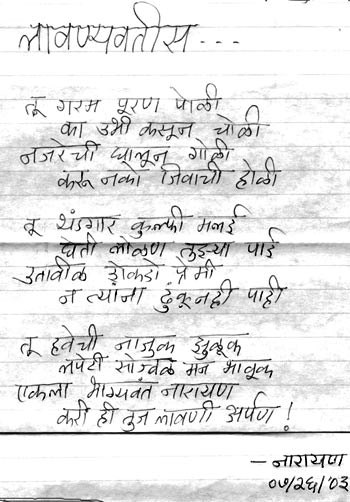 लावण्यवतीस...
तू गरम पूरण पोळी
का उभी कसून चोळी
नजरेची घालून गोळी
करू नका जिवाची होळी
तू थंडगार कुल्फी मलई
घेती लोळण तुझ्या पाई
उतावीळ शेकडो प्रेमी
न त्यांना ढुंकूनही पाही
तू हवेची नाजुक झुळूक
लपेटी सोज्वळ मन भावूक
एकला भाग्यवंत नारायण
करी ही तुज लावणी अर्पण!
- नारायण
०७/२६/०३